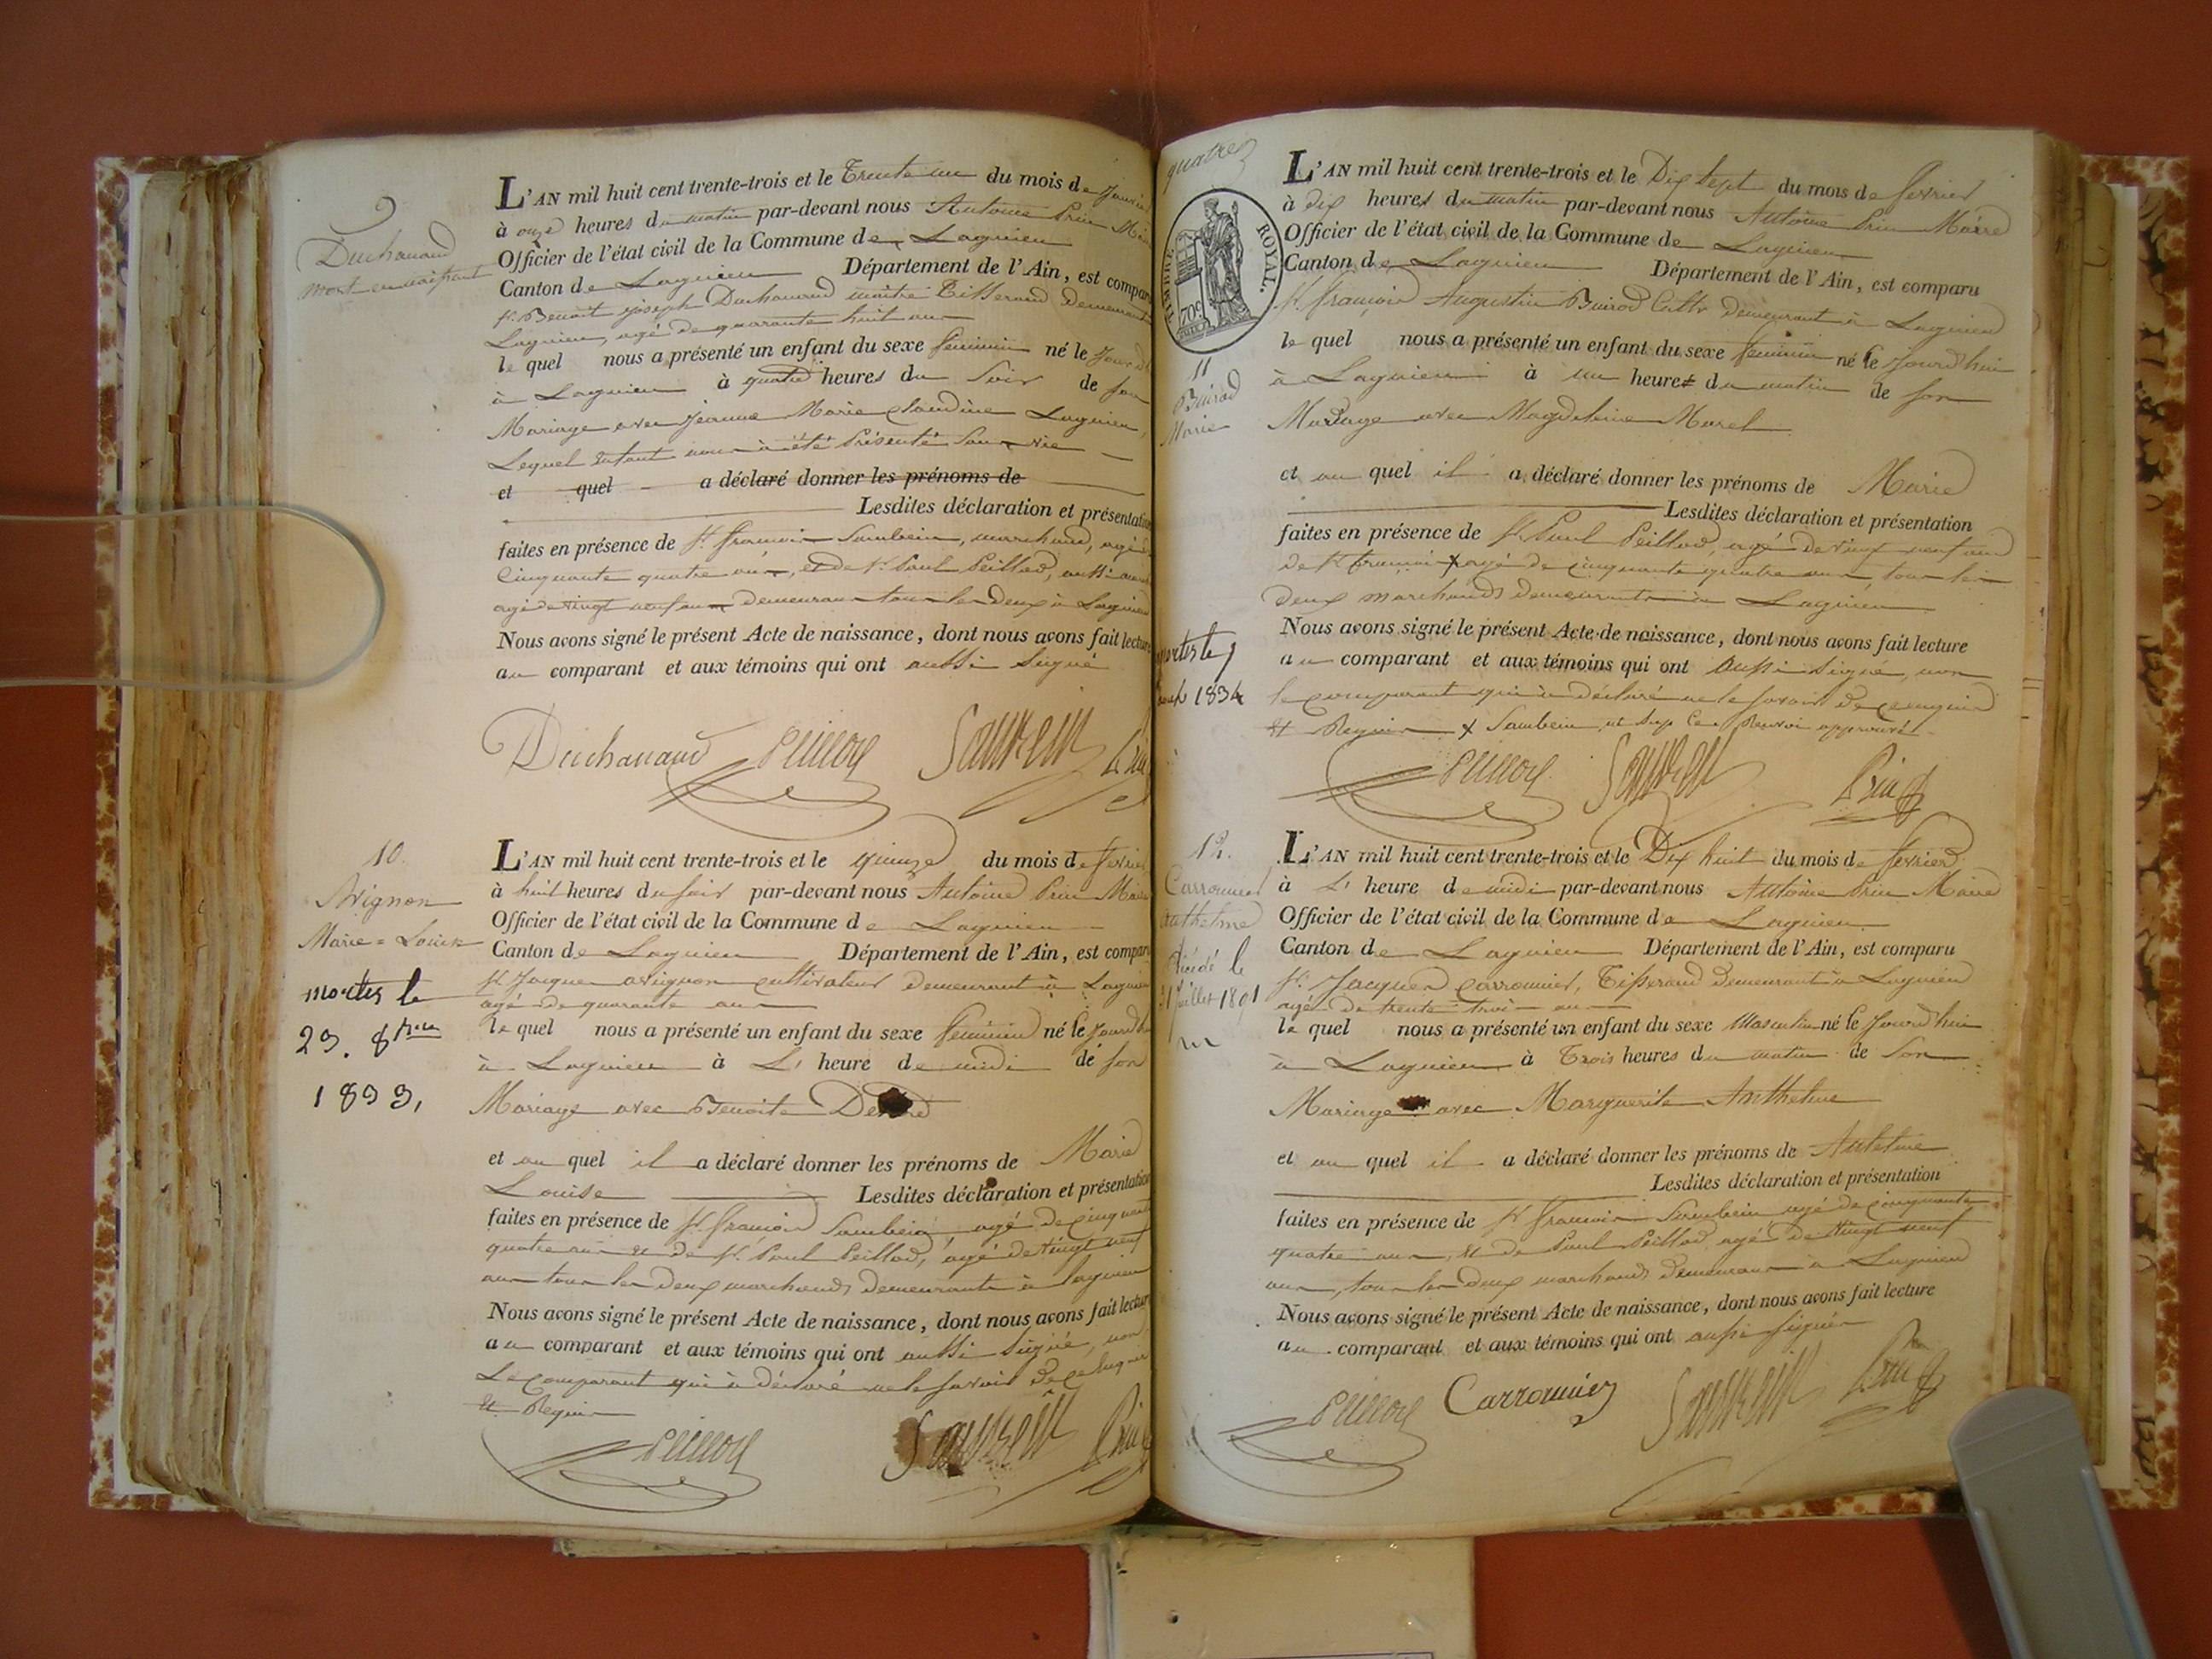 9
Duchanaud
mort en naissant
L'AN mil huit cent trente-trois et le Trente un du mois de Janvier
à onze heures du matin par-devant nous Antoine Prin
Officier de l'état civil de la Commune de Lagnieu
Canton de Lagnieu Département de l'Ain, est compar
sr. Benoit Joseph Duchanaud maitre Tisserand Demeurant
Lagnieu, agé de quarante huit ans
le quel nous a présenté un enfant du sexe feminin né le
à Lagnieu à quatre heures du Soir de son
Mariage avec Jeanne Marie Claudine Lagnieu,
Lequel Enfant nous à été Présenté Sans vie
et quel a déclaré donner les prénoms de
Lesdites déclaration et présentation
faites en présence de sr. françois Sambein, marchand, agé de
Cinquante quatre ans, et de sr. Paul Peillod, aussi
agé de vingt neuf ans Demeurans tous les Deux à Lagnieu
Nous avons signé le présent Acte de naissance, dont nous avons fait lecture
au comparant et aux témoins qui ont aussi Signé
Duchanaud Peillod Sambein Prin
10.
Avignon
Marie = Louise
mortes le
23. 8bre
1833.
L'AN mil huit cent trente-trois et le quinze du mois de fevrier
à huit heures du soir par-devant nous Antoine Prin Maire
Officier de l'état civil de la Commune de Lagnieu
Canton de Lagnieu Département de l'Ain, est compar
sr. Jacques avignon cultivateur demeurant à Lagnieu
agé de quarante ans
le quel nous a présenté un enfant du sexe feminin né le Jourd'hui
à Lagnieu à L' heure de midi de son
Mariage avec Benoite
et au quel il a déclaré donner les prénoms de Marie
Louise Lesdites déclaration et présentation
faites en présence de sr. françois Sambein, agé de cinquante
quatre ans et de sr. Paul Peillod, agé de vingt neuf
ans tous les deux marchands demeurants à lagnieu
Nous avons signé le présent Acte de naissance, dont nous avons fait lecture
au comparant et aux témoins qui ont aussi Signé, non
Le comparant qui à déclaré ne le savoir de ce
Et Requis
Peillod Sambein Prin
quatre
TIMBRE ROYAL.
70c
11
Buirod
Marie
1834
L'AN mil huit cent trente-trois et le Dix Sept du mois de fevrier
à dix heures du matin par-devant nous Antoine Prin Maire
Officier de l'état civil de la Commune de Lagnieu
Canton de Lagnieu Département de l'Ain, est comparu
sr. françois Augustin Buirod Cultr. Demeurant à Lagnieu
le quel nous a présenté un enfant du sexe feminin né le Jourd'hui
à Lagnieu à un heure du matin de son
Mariage avec Magdeleine Morel
et au quel il a déclaré donner les prénoms de Marie
Lesdites déclaration et présentation
faites en présence de sr. Paul Peillod, agé de vingt neuf ans
de sr françois x agé de cinquante quatre ans, tous les
deux marchands demeurants à Lagnieu
Nous avons signé le présent Acte de naissance, dont nous avons fait lecture
au comparant et aux témoins qui ont aussi Signé, non
le comparant qui à déclaré ne le savoir de ce enquis
Et Requis x Sambein, Renvoi approuvé
Peillod Sambein Prin
12.
Carronnier
Anthelme
décédé le
31 Juillet 1891
L'AN mil huit cent trente-trois et le Dix huit du mois de fevrier
à L' heure de midi par-devant nous Antoine Prin Maire
Officier de l'état civil de la Commune de Lagnieu
Canton de Lagnieu Département de l'Ain, est comparu
sr. Jacques Carronnier, Tisserand demeurant à Lagnieu
agé de trente trois ans
le quel nous a présenté un enfant du sexe Masculin né le Jourd'hui
à Lagnieu à Trois heures du matin de Son
Mariage avec Marguerite Anthelme
et au quel il a déclaré donner les prénoms de Antelme
Lesdites déclaration et présentation
faites en présence de sr francois Sambein agé de cinquante
quatre ans, et de Paul Peillod agé de vingt neuf
ans, tous les deux marchands demeurans à Lagnieu
Nous avons signé le présent Acte de naissance, dont nous avons fait lecture
au comparant et aux témoins qui ont aussi signés
Peillod Carronnier Sambein Prin